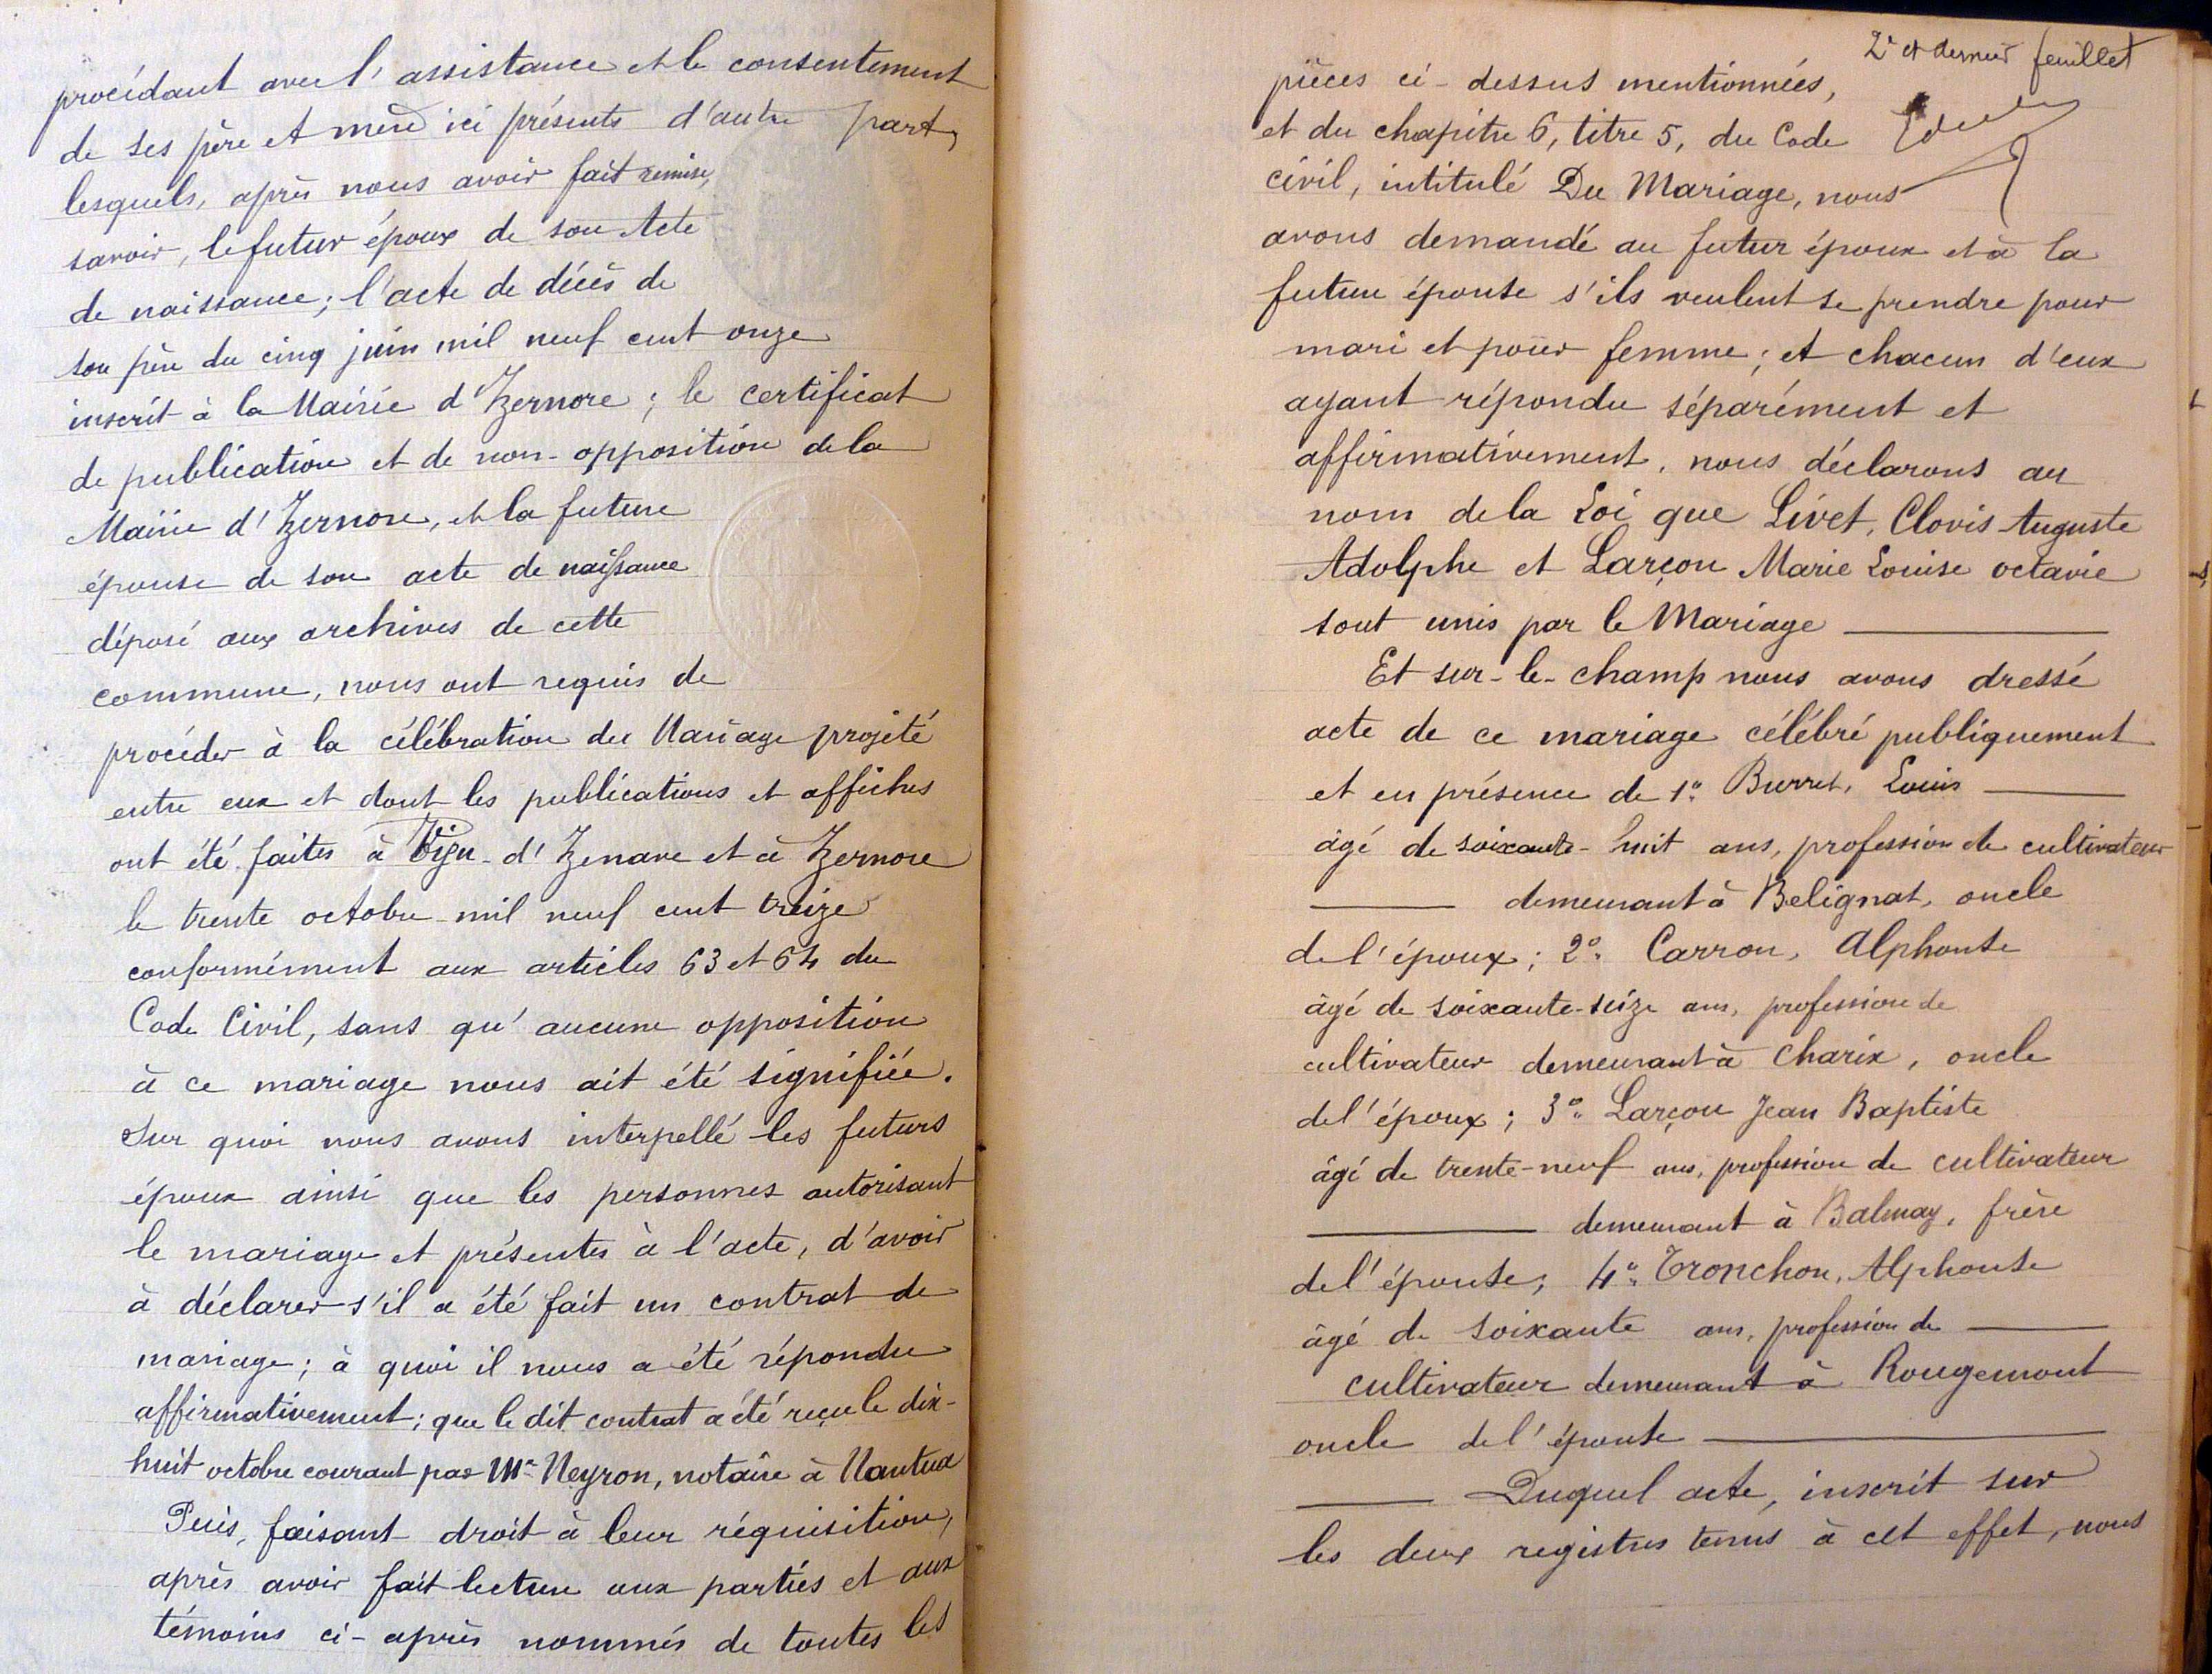 procédant avec l'assistance et le consentement
de ses père et mère ici présents d'autre part,
lesquels, après nous avoir fait remise,
savoir, le futur époux de son Acte
de naissance; l'acte de décès de
son père du cinq juin mil neuf cent onze
inscrit à la Mairie d'Izernore; le certificat
de publication et de non-opposition de la
Mairie d'Izernore, et la future
épouse de son acte de naissance
déposé aux archives de cette
commune, nous ont requis de
procéder à la célébration du Mariage projeté
entre eux et dont les publications et affiches
ont été faites à d'Izenave et à Izernore
le trente octobre mil neuf cent treize
conformément aux articles 63 et 64 du
Code Civil, sans qu'aucune opposition
à ce mariage nous ait été signifiée.
Sur quoi nous avons interpellé les futurs
époux ainsi que les personnes autorisant
le mariage et présentes à l'acte, d'avoir
à déclarer s'il a été fait un contrat de
mariage; à quoi il nous a été répondu
affirmativement; que le dit contrat a été reçu le dix-
huit octobre courant par Me Neyron, notaire à Nantua
Puis, faisant droit à leur réquisition,
après avoir fait lecture aux parties et aux
témoins ci-après nommés de toutes les
2e et dernier feuillet
pièces ci-dessus mentionnées,
et du chapitre 6, titre 5, du Code
civil, intitulé Du Mariage, nous
avons demandé au futur époux et à la
future épouse s'ils veulent se prendre pour
mari et pour femme; et chacun d'eux
ayant répondu séparément et
affirmativement, nous déclarons au
nom de la Loi que Livet, Clovis Auguste
Adolphe et Larçon Marie Louise octavie
sont unis par le Mariage
Et sur-le-champ nous avons dressé
acte de ce mariage célébré publiquement
et en présence de 1o. Burret, Louis
âgé de soixante-huit ans, profession de cultivateur
demeurant à Belignat, oncle
de l'époux; 2o. Carron, Alphonse
âgé de soixante-seize ans, profession de
cultivateur demeurant à Charix, oncle
de l'époux; 3o. Larçon Jean Baptiste
âgé de trente-neuf ans, profession de cultivateur
demeurant à Balmay, frère
de l'épouse; 4o. Tronchon, Alphonse
âgé de soixante ans, profession de
cultivateur demeurant à Rougemont
oncle de l'épouse
Duquel acte, inscrit sur
les deux registres tenus à cet effet, nous